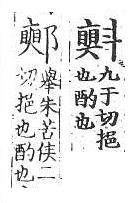 㪺
九于切挹
也酌也
舉朱苦侠二
切挹也酌也